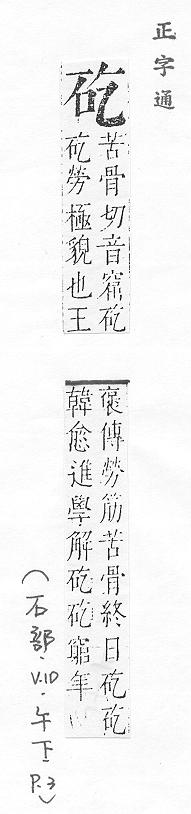 正字通
矻
苦骨切音窟矻
矻勞極貌也王
褒傳勞筋苦骨終日矻矻
韓愈進學解矻矻窮年
(石部.V.10.午下P.3)